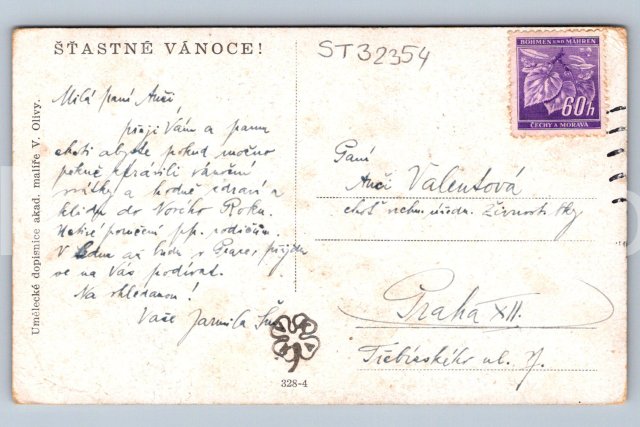 ŠŤASTNÉ VÁNOCE!
ST32354
BÖHMEN UND MÄHREN
60h
ČECHY A MORAVA
Umělecké dopisnice akad. malíře V. Olivy.
Milá paní Anči,
přeji Vám a panu
choti abyste pokud možno
pěkně strávili vánoční
svátky a hodně zdraví a
klidu do Nového Roku.
poručení pp. rodičům.
V lednu až budu v Praze, přijdu
se na Vás podívat.
Na shledanou!
Vaše Jarmila
Paní
Anči Valentová
choť úředn. Živnosti bky
Praha XII.
Třebízského ul. 7.
328-4